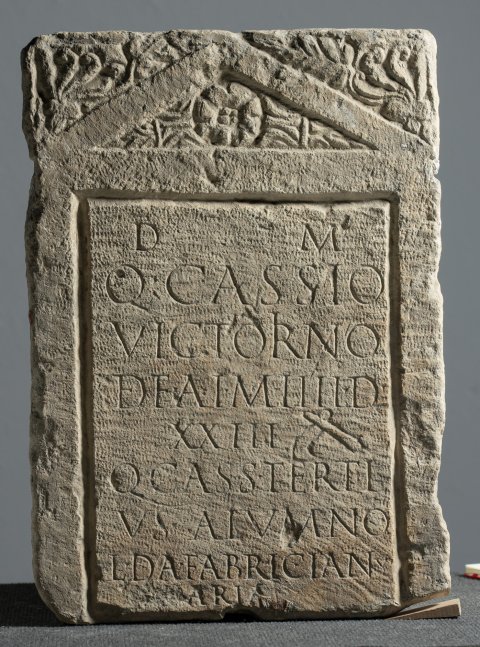 D M
Q·CASSIO
VICTORNO
DFAIMIIIID
XXIIE
Q·CASSTERTI
VS·ALVMNO
L·D·AFABRICIAN
ARIA